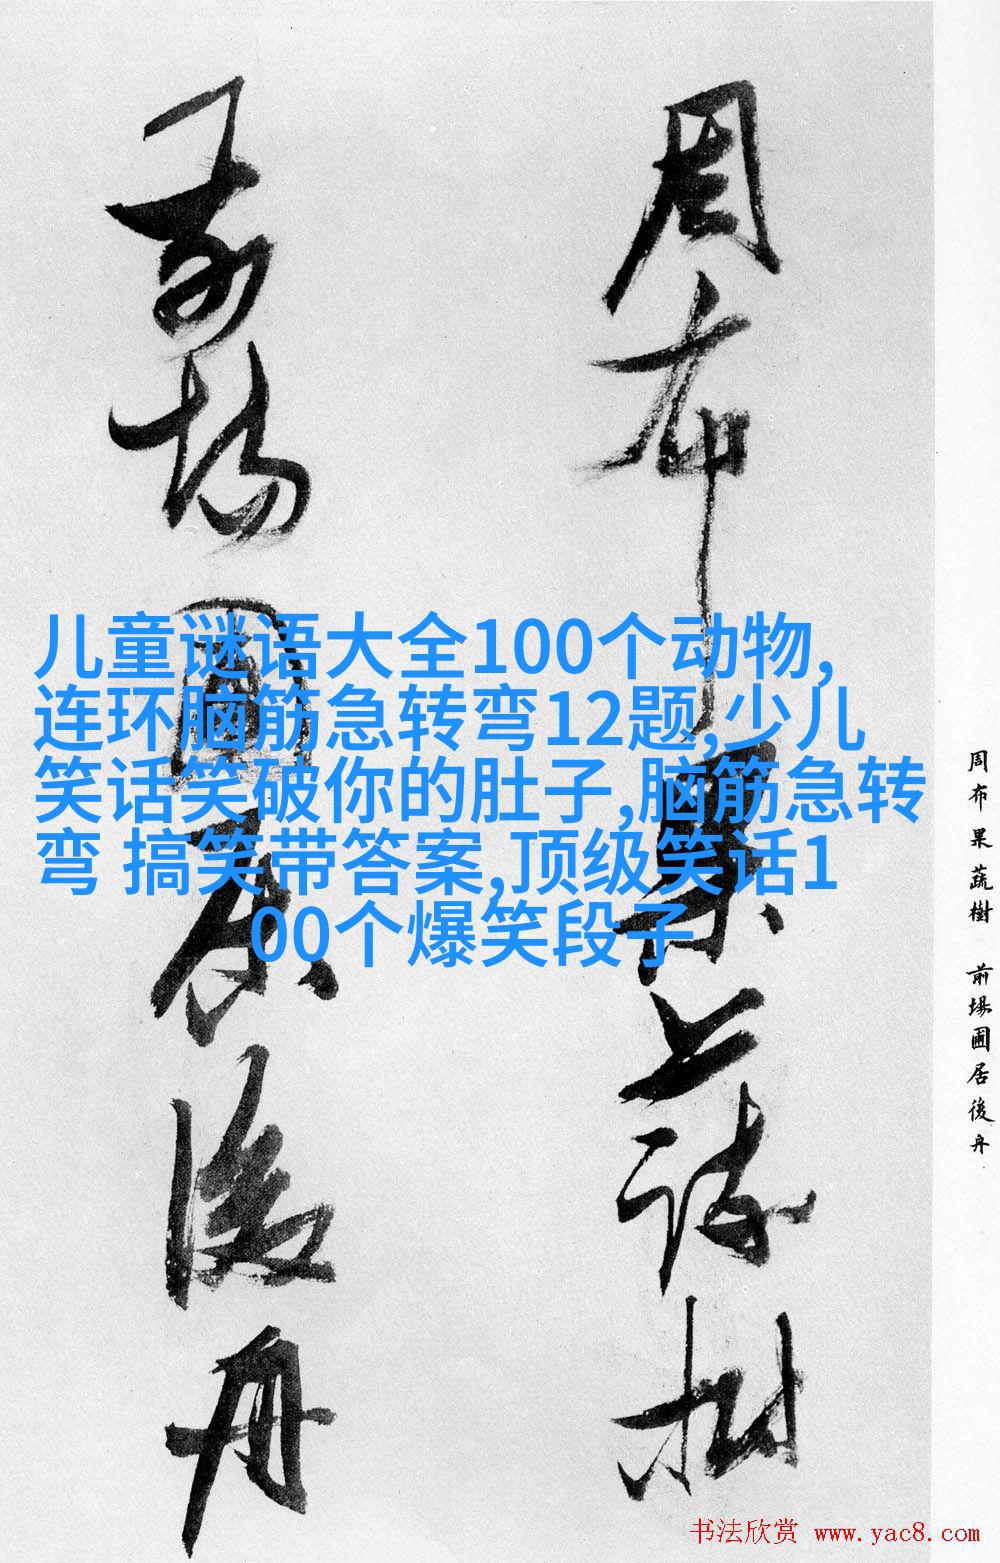 周布果蔬樹
前場圃居後舟
儿童谜语大全100个动物,
连环脑筋急转弯12题,少儿
笑话笑破你的肚子,脑筋急转
弯 搞笑带答案,顶级笑话1
00个爆笑段子
周布果蔬樹 前場圃居後舟
书法欣赏 www.yac8.com